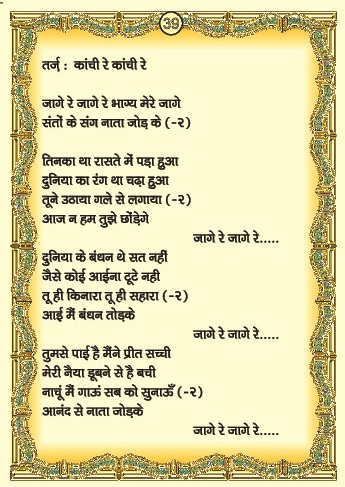 39
तर्ज़ : कांची रे कांची रे
जागे रे जागे रे भाग्य मेरे जागे
संतों के संग नाता जोड़ के (-२)
तिनका था रास्ते में पड़ा हुआ
दुनिया का रंग था चढ़ा हुआ
तूने उठाया गले से लगाया (-२)
आज न हम तुझे छोंड़ेगे
जागे रे जागे रे.....
दुनिया के बंधन थे सत नहीं
जैसे कोई आईना टूटे नही
तू ही किनारा तू ही सहारा (-२)
आई मैं बंधन तोड़के
जागे रे जागे रे.....
तुमसे पाई है मैंने प्रीत सच्ची
मेरी नैया डूबने से है बची
नाचूं मैं गाऊं सब को सुनाऊँ (-२)
आनंद से नाता जोड़के
जागे रे जागे रे.....